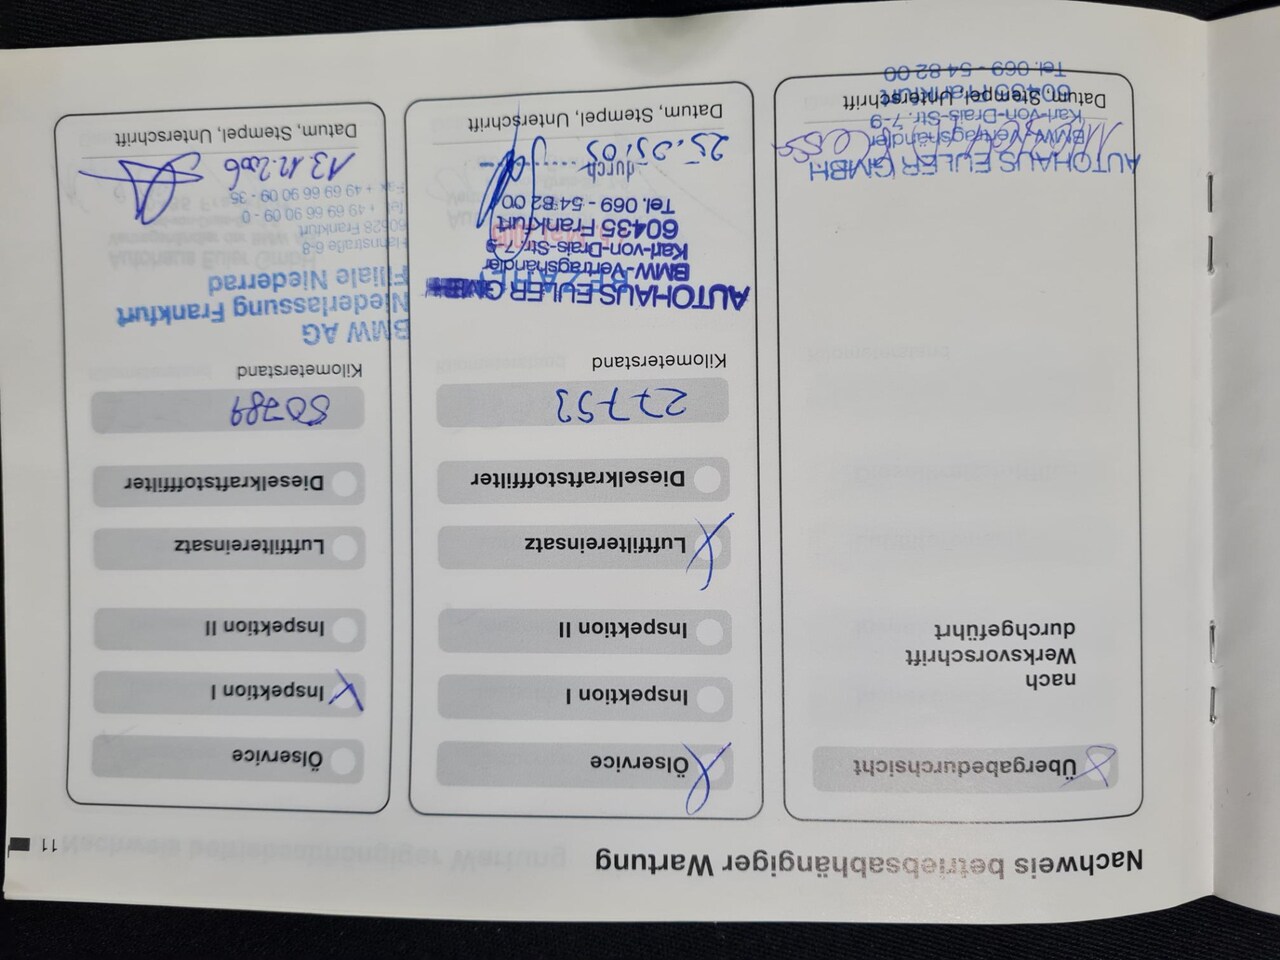 Nachweis betriebsabhängiger Wartung
Übergabedurchsicht
nach
Werksvorschrift
durchgeführt
AUTOHAUS EULER GMBH
BMW-Vertragshändler
Karl-von-Drais-Str. 7-9
60435 Frankfurt
Tel. 069 - 54 82 00
Datum, Stempel, Unterschrift
Ölservice
Inspektion I
Inspektion II
Luftfiltereinsatz
Dieselkraftstofffilter
27753
Kilometerstand
AUTOHAUS EULER GMBH
BMW-Vertragshändler
Karl-von-Drais-Str. 7-9
60435 Frankfurt
Tel. 069 - 54 82 00
durch
25.05.05
Datum, Stempel, Unterschrift
Ölservice
Inspektion I
Inspektion II
Luftfiltereinsatz
Dieselkraftstofffilter
50789
Kilometerstand
BMW AG
Niederlassung Frankfurt
Filiale Niederrad
Hahnstraße 6-8
60528 Frankfurt
Tel. + 49 69 66 90 09 - 0
Fax + 49 69 66 90 09 - 35
13.12.2006
Datum, Stempel, Unterschrift
11